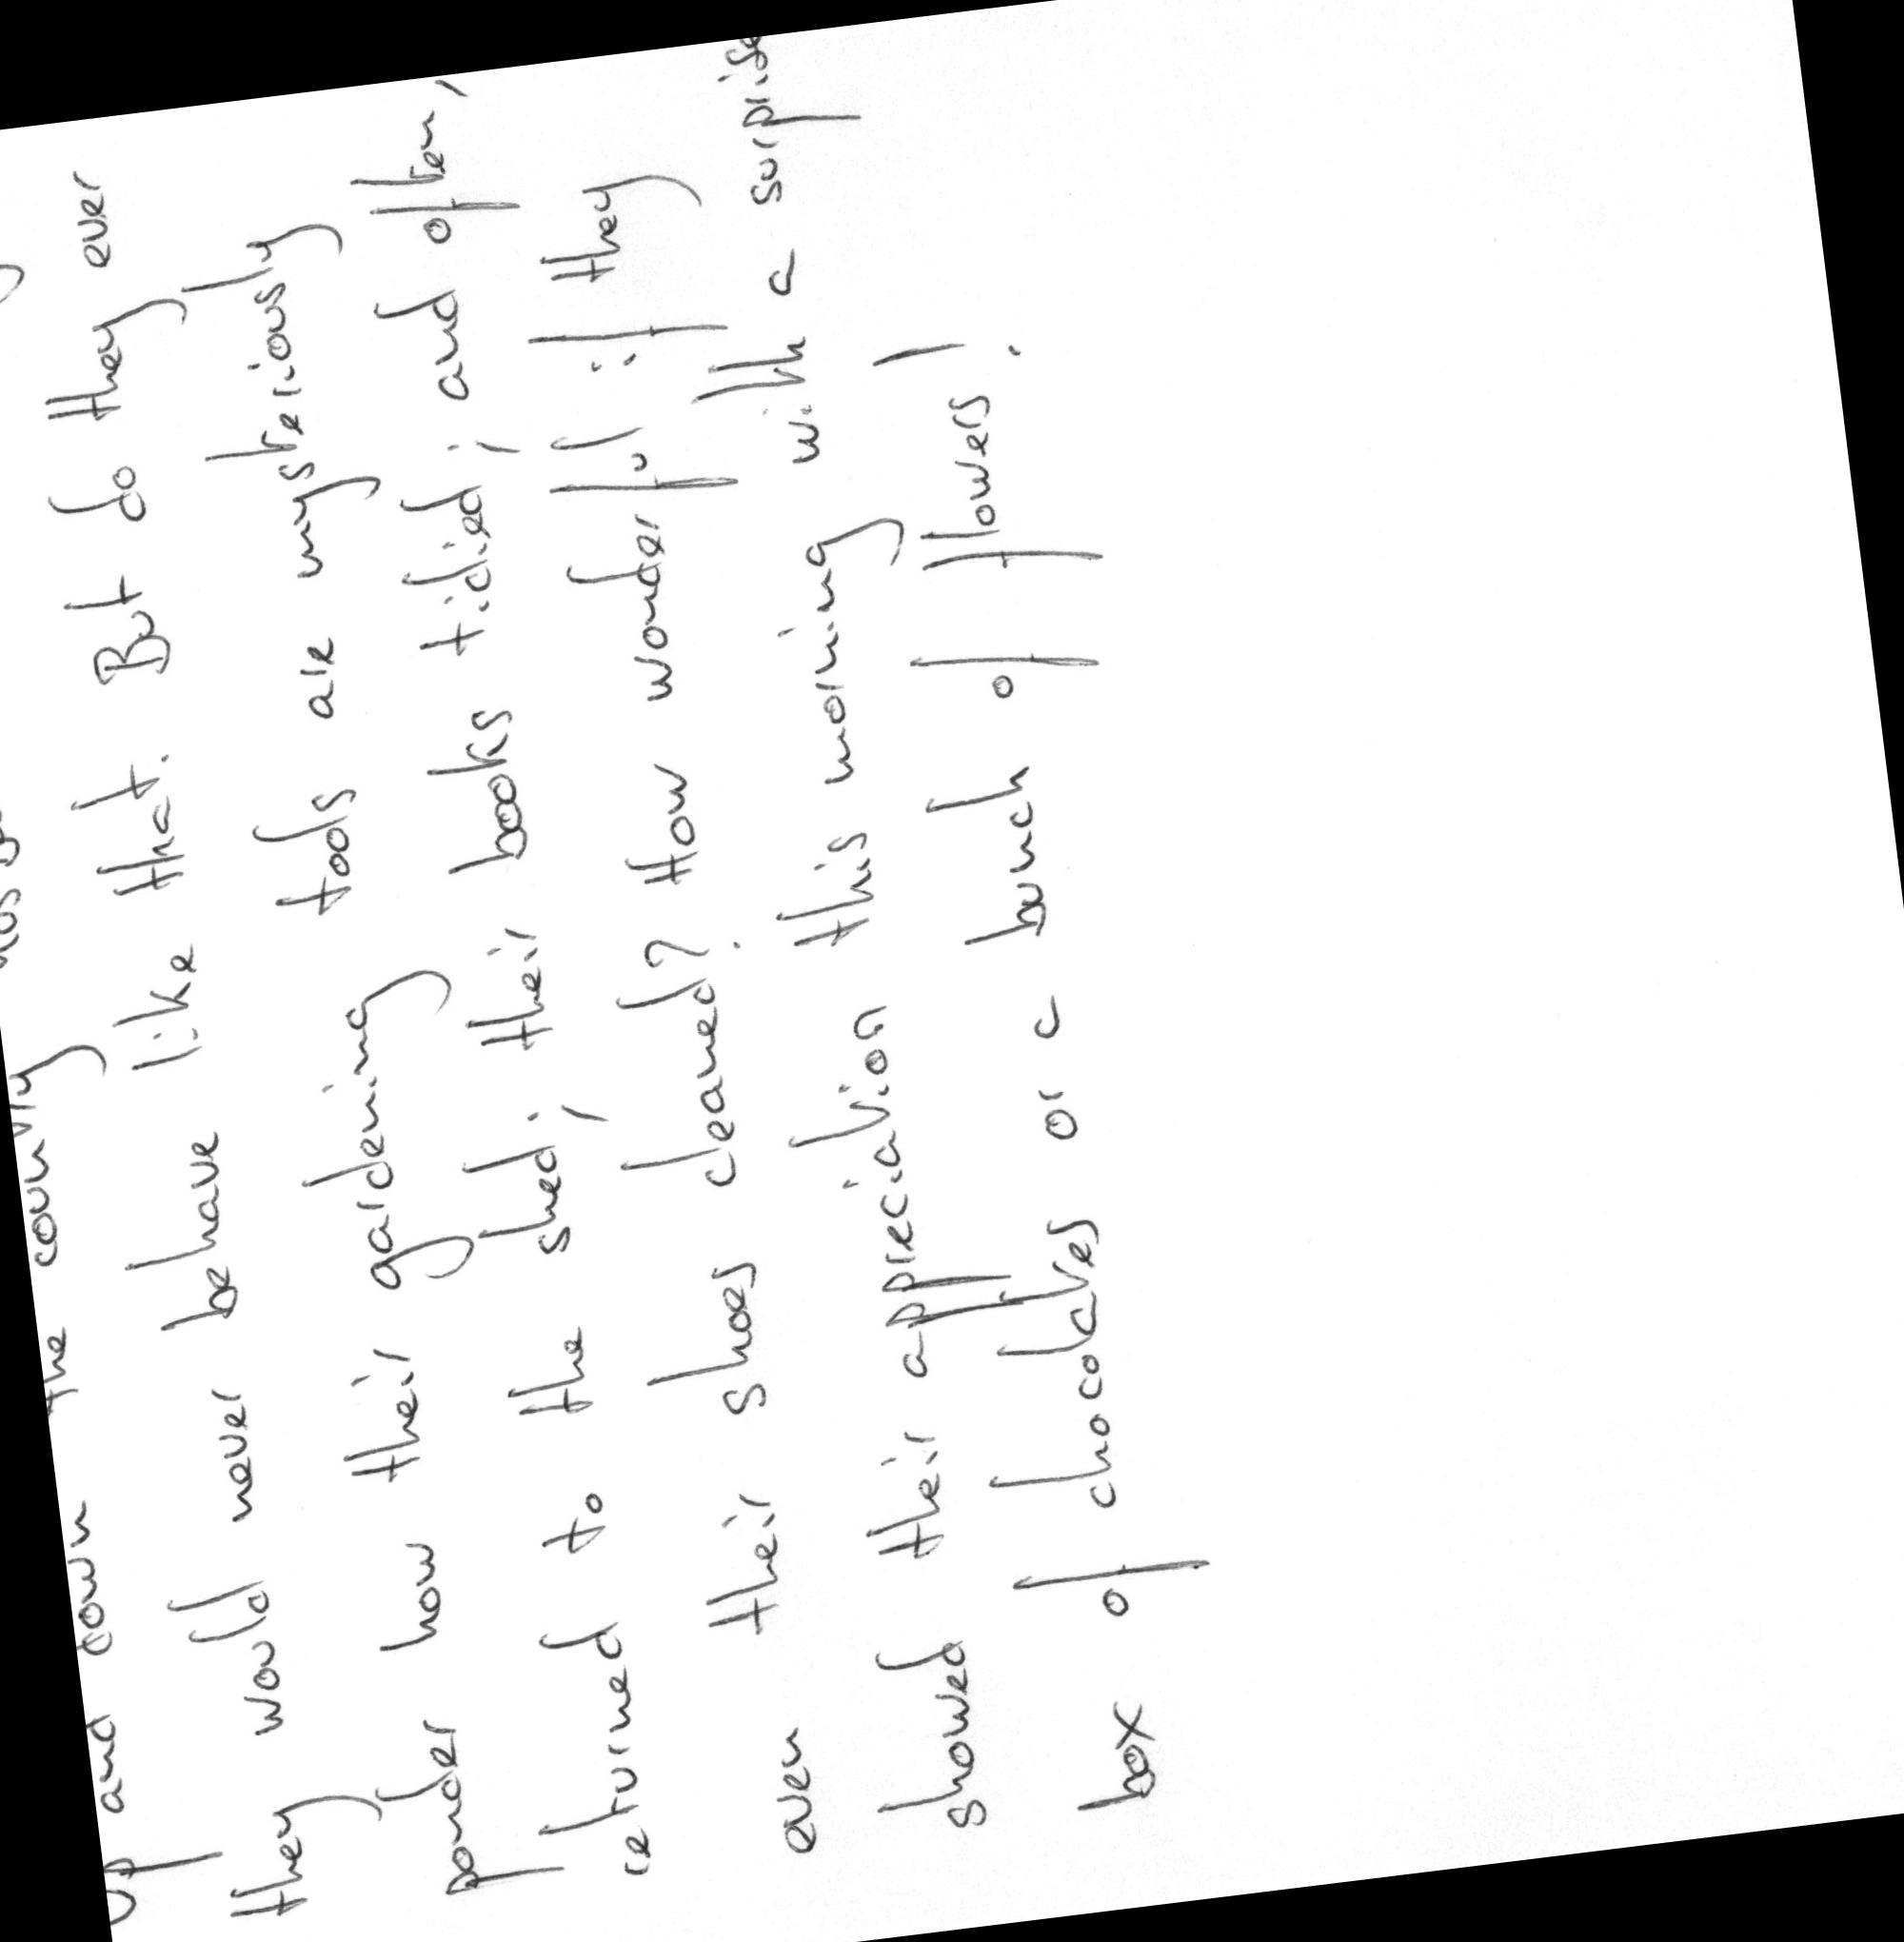 up and down the country
they would never behave like that. But do they ever
ponder how their gardening tools are mysteriously
returned to the shed; their books tidied; and often,
even their shoes cleaned? How wonderful if they
showed their appreciation this morning with a surprise
box of chocolates or a bunch of flowers!